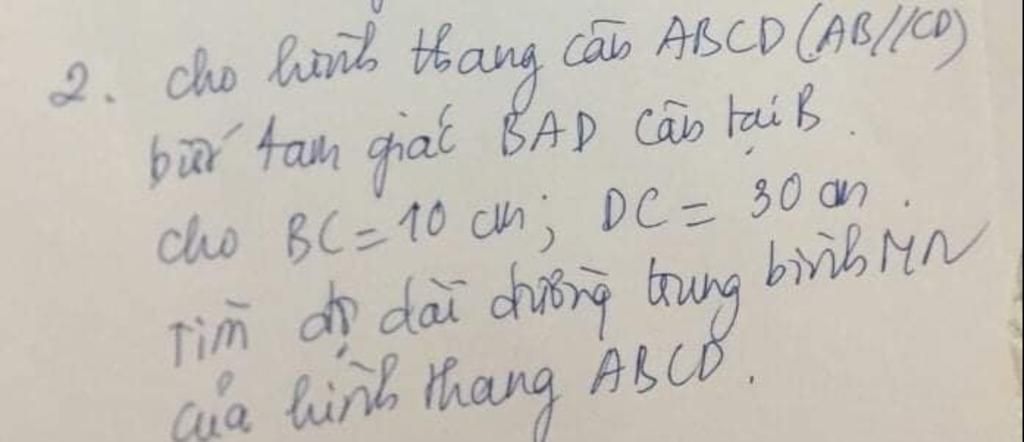 2. cho hình thang cân ABCD (AB//CD)
biết tam giác BAD cân tại B.
cho BC = 10 cm; DC = 30 cm.
Tìm độ dài đường trung bình MN
của hình thang ABCD.